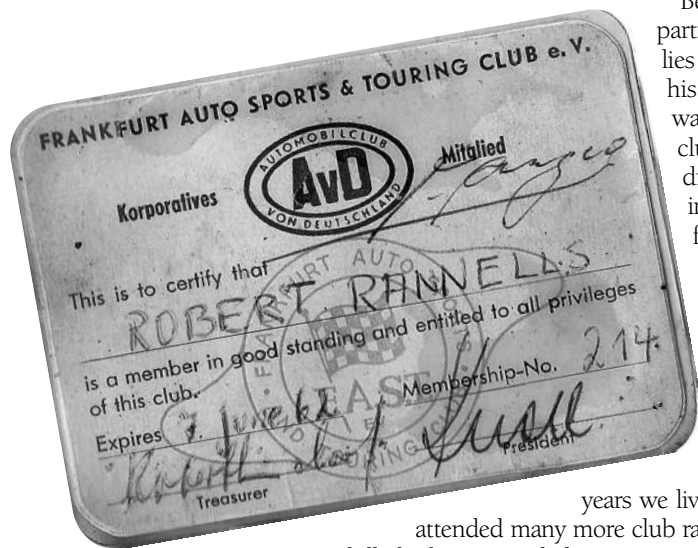 FRANKFURT AUTO SPORTS & TOURING CLUB e. V.
Korporatives
AUTOMOBILCLUB
AvD
VON DEUTSCHLAND
Mitglied
This is to certify that
ROBERT RANNELLS
is a member in good standing and entitled to all privileges
of this club.
Membership-No. 214
Expires 7 June 62
Treasurer
President
FRANKFURT AUTO
FAST
TOURING CLUB
Be
parti
lies
his
wa
clu
di
in
f
years we liv
attended many more club ra